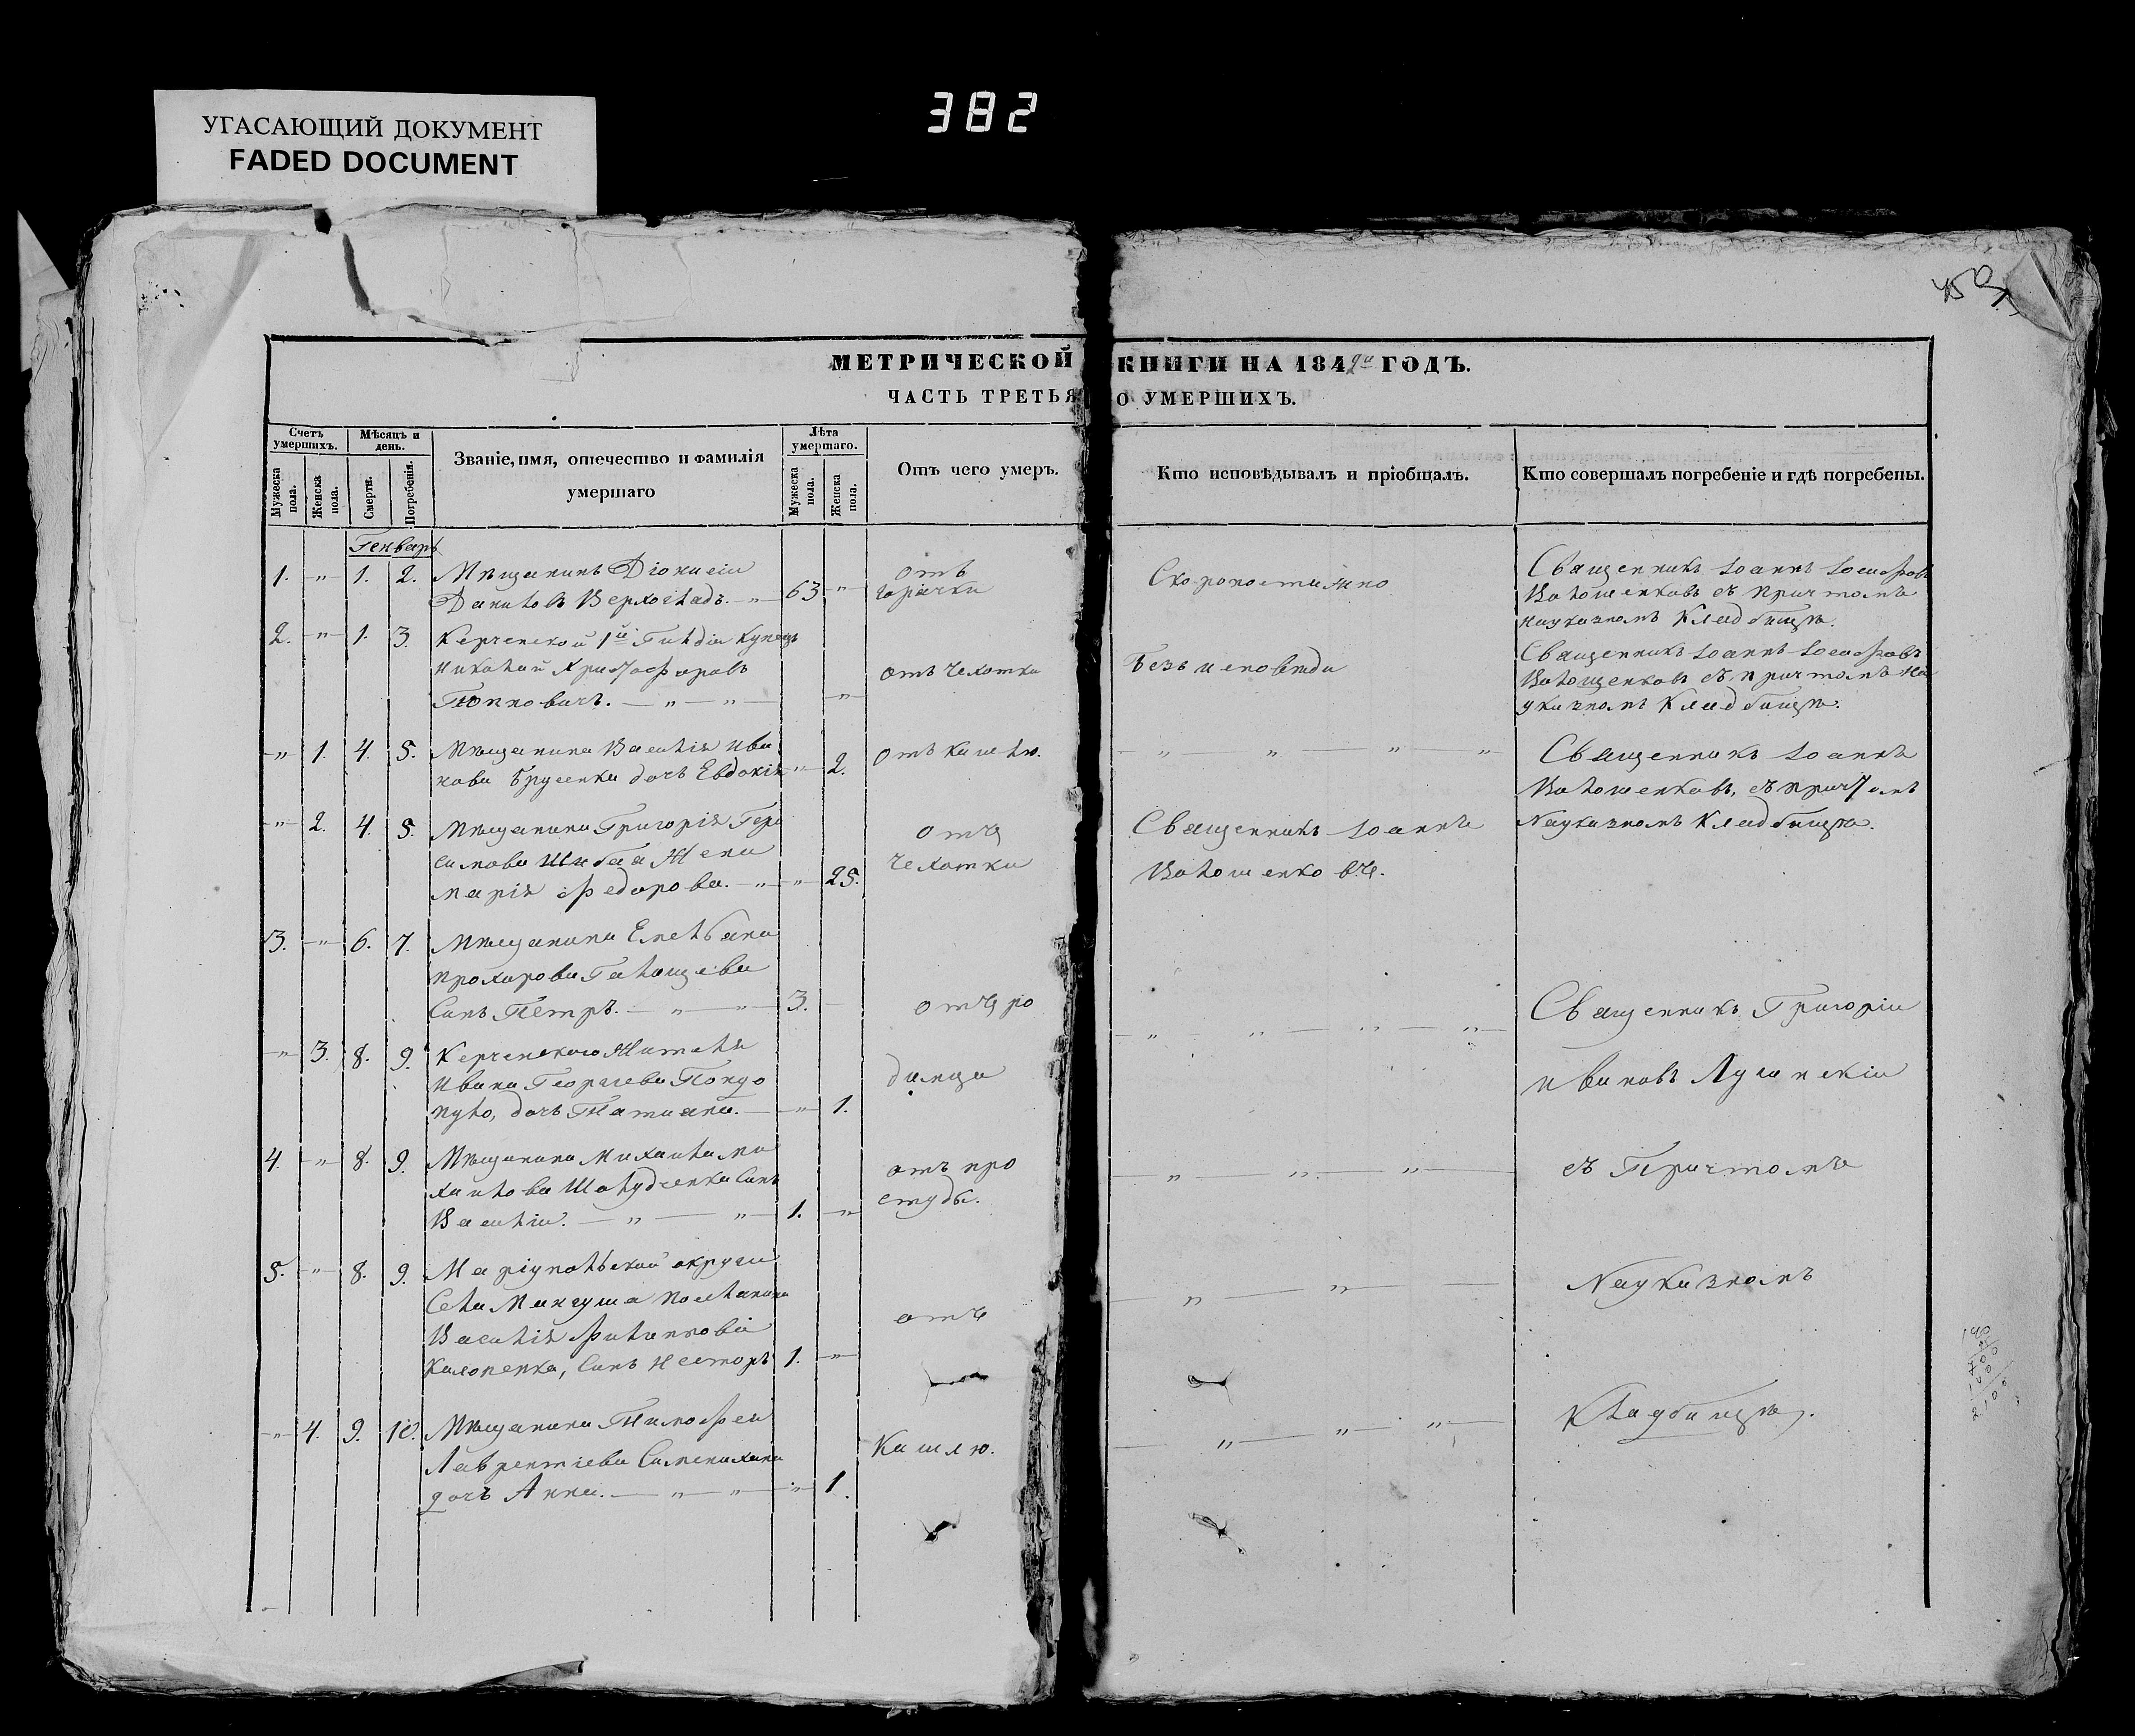 382
УГАСАЮЩИЙ ДОКУМЕНТ
FADED DOCUMENT
МЕТРИЧЕСКОЙ КНИГИ НА 184 ГОДЪ.
ЧАСТЬ ТРЕТЬЯ О УМЕРШИХЪ.
Счетъ умершихъ.
Мужеска пола.
Женска пола.
Мѣсяцъ и день.
Смерти.
Погребенія.
Званіе, имя, отечество и фамилія умершаго
Лѣта умершаго.
Мужеска пола.
Женска пола.
Отъ чего умеръ.
Кто исповѣдывалъ и пріобщалъ.
Кто совершалъ погребеніе и гдѣ погребены.
Генварь
1. „ 1. 2. Мѣщанинъ Діонисіи
Данилов 63 „
отъ
горячки
Скоропостижно
Священникъ Іоаннъ Іосифовъ
Волошенковъ съ Причтомъ
На указномъ Кладбищѣ.
2. „ 1. 3. Керченской 1й Гилдіи Купецъ
Николай Христофоровъ
Поповичъ. „ „ „
отъ Чехотки
Безъ исповѣди
Священникъ Іоаннъ Іосифовъ
Волощенковъ съ причтомъ На
указномъ Кладбищѣ.
„ 1. 4. 5. Мѣщанина Василія Ива
нова дочь Евдокія „ 2.
Отъ кашлю.
„ „ „ „
Священникъ Іоаннъ
Волошенковъ, съ причтомъ
На указномъ Кладбищѣ.
„ 2. 4. 5. Мѣщанина Григорія Гера
симова Жена
Марія Федорова. „ „ 25.
отъ
Чехотки
Священникъ Іоаннъ
Волошенковъ.
3. „ 6. 7. Мѣщанина
Прохорова
Сынъ Петръ. „ „ 3.
отъ ро
„ „ „ „
Священникъ Григоріи
„ 3. 8. 9. Керченскаго Жителя
Ивана Георгіева
дочь Татиана. „ 1.
димца
Ивановъ
4. „ 8. 9. Мѣщанина Михаила Ми
хайлова Сынъ
Василіи. „ „ 1. „
отъ про
студы.
„ „ „
съ Причтомъ
5. „ 8. 9. Маріупольской округи
Села Мангуша Поселянина
Василія Филиппова
Сынъ Несторъ 1. „
отъ
„ „
На указномъ
„ 4. 9. 10. Мѣщанина Тимофея
Лаврентіева
дочь Анна. „ „ „ 1.
Кашлю.
„ „ „
Кладбищѣ.